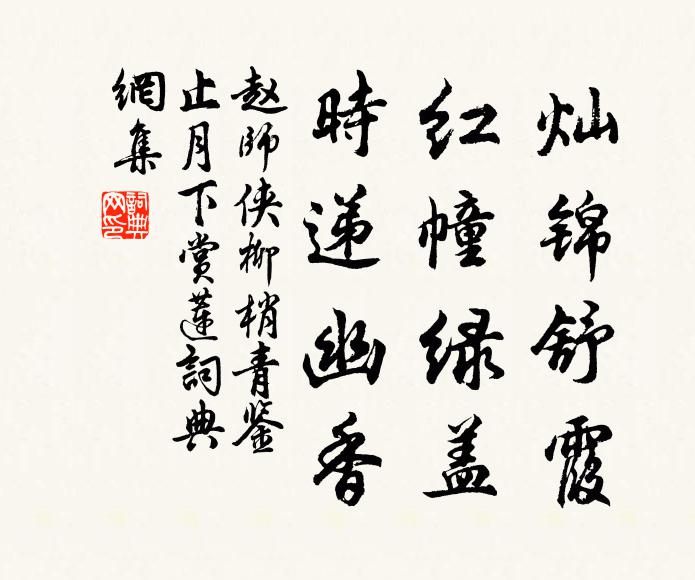 灿锦舒霞
红幢绿盖
時递幽香
赵師侠柳梢青鉴
止月下赏莲詞典
網集
詞典网印